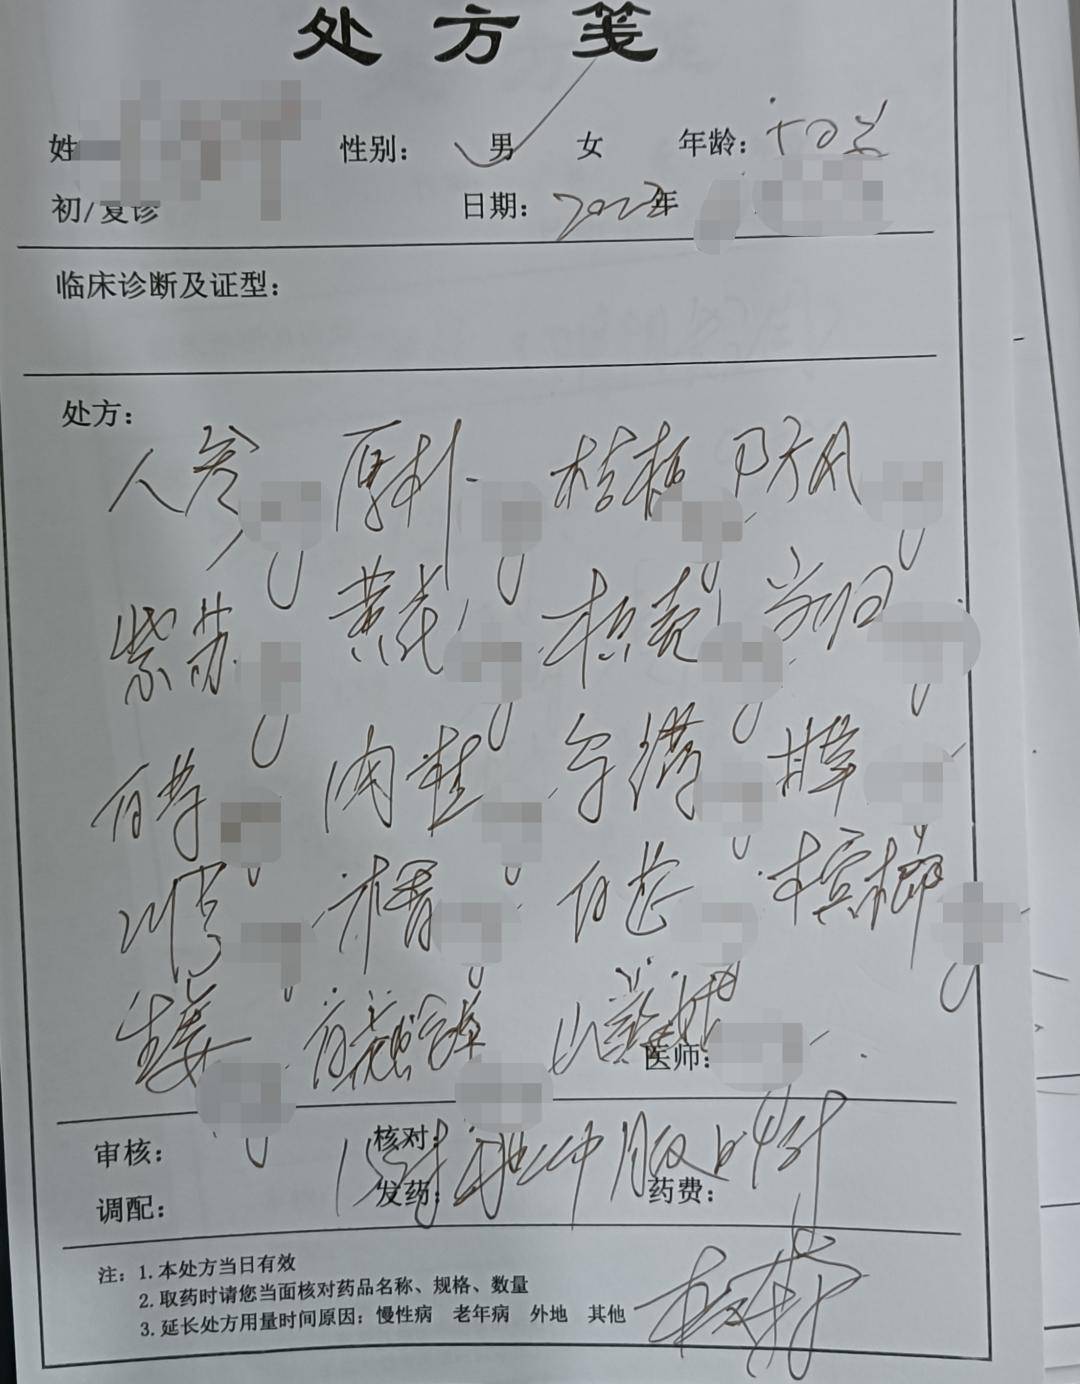 处方笺
姓 性别： 男 女 年龄：
初/复诊 日期：2023年
临床诊断及证型：
处方：
人参 厚朴 桔梗 防风
紫苏 黄芪 枳壳 当归
白芍 肉桂 乳没 甘草
川芎 木香 白芷 槟榔
生姜
医师：
审核： 核对：
调配： 发药： 药费：
注：1.本处方当日有效
2.取药时请您当面核对药品名称、规格、数量
3.延长处方用量时间原因：慢性病 老年病 外地 其他